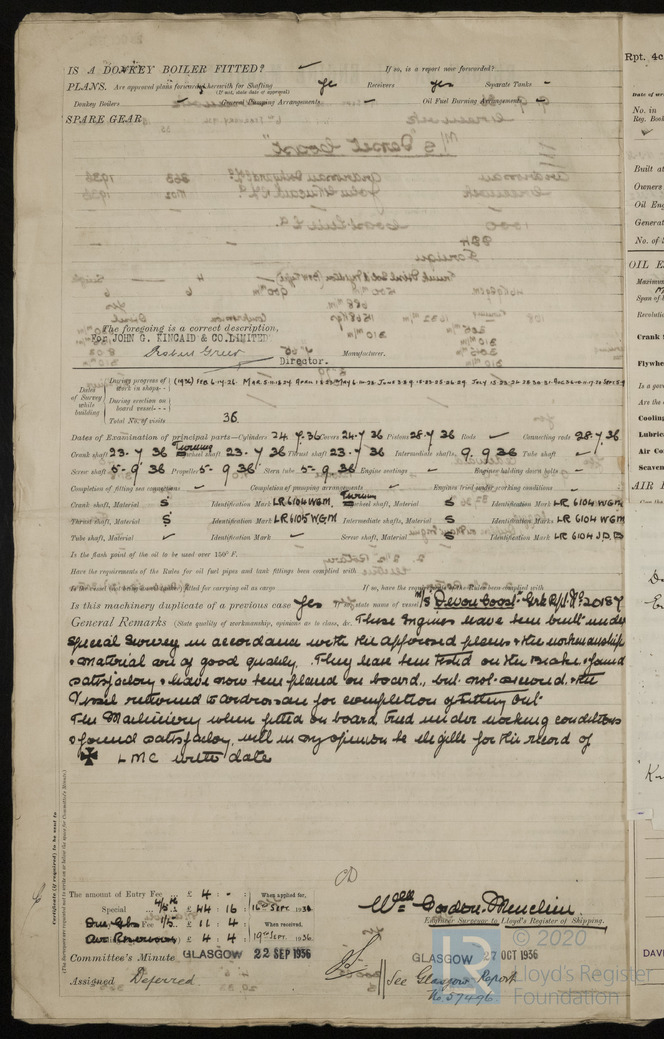 IS A DONKEY BOILER FITTED? ✓ If so, is a report now forwarded?
PLANS. Are approved plans forwarded herewith for Shafting Yes Receivers Yes Separate Tanks -
(If not, state date of approval)
Donkey Boilers General Pumping Arrangements Oil Fuel Burning Arrangements
SPARE GEAR
The foregoing is a correct description,
For JOHN G. KINCAID & CO. LIMITED
Robert Green Director. Manufacturer.
Dates of Survey while building
During progress of work in shops - -
During erection on board vessel - - -
Total No. of visits 36.
Dates of Examination of principal parts—Cylinders 24.7.36 Covers 24.7.36 Pistons 28.7.36 Rods ✓ Connecting rods 28.7.36
Crank shaft 23.7.36 shaft 23.7.36 Thrust shaft 23.7.36 Intermediate shafts, 9.9.36 Tube shaft ✓
Screw shaft 5-9.36 Propeller 5-9.36 Stern tube 5-9.36 Engine seatings ✓ Engines holding down bolts
Completion of fitting sea connections Completion of pumping arrangements Engines tried under working conditions
Crank shaft, Material S Identification Mark LR 6104 WGM shaft, Material S Identification Mark LR 6104 WGM
Thrust shaft, Material S Identification Mark LR 6105 WGM Intermediate shafts, Material S Identification Marks LR 6104 WGM
Tube shaft, Material ✓ Identification Mark ✓ Screw shaft, Material S Identification Mark LR 6104 J.D.B
Is the flash point of the oil to be used over 150° F.
Have the requirements of the Rules for oil fuel pipes and tank fittings been complied with
If so, have the requirements of the Rules been complied with
Is this machinery duplicate of a previous case Yes If so, state name of vessel M/S "Devon Coast" Grk Rpt. No 20187
General Remarks (State quality of workmanship, opinions as to class, &c. These Engines have been built under
Special Survey in accordance with the approved plans & the workmanship
& material are of good quality. They have been tested on the brake & found
satisfactory & have now been placed on board, but not secured, & the
Vessel returned to Ardrossan for completion of fitting out.
The Machinery when fitted on board, tried under working conditions
& found satisfactory, will in my opinion be eligible for the record of
✠ LMC with date
The amount of Entry Fee .. £ 4 : - : When applied for,
Special £ 44 : 16 : 16th Sept. 1936
Fee £ 11 : 4 When received,
Air Reservoirs £ 4 : 4 19th Sept. 1936
Engineer Surveyor to Lloyd's Register of Shipping.
Committee's Minute GLASGOW 22 SEP 1936
GLASGOW 27 OCT 1936
Assigned Deferred
See Glasgow Report
No. 57496
Certificate (if required) to be sent to
(The Surveyors are requested not to write on or below the space for Committee's Minute.)
© 2020
Lloyd's Register
Foundation
Rpt. 4c.
No. in
Reg. Book
Built at
Owners
Oil Eng
Generat
No. of
OIL E
Crank S
Flywhe
Is a gov
Are the
Cooling
Lubric
Air Co
Scaven
AIR
DAVI